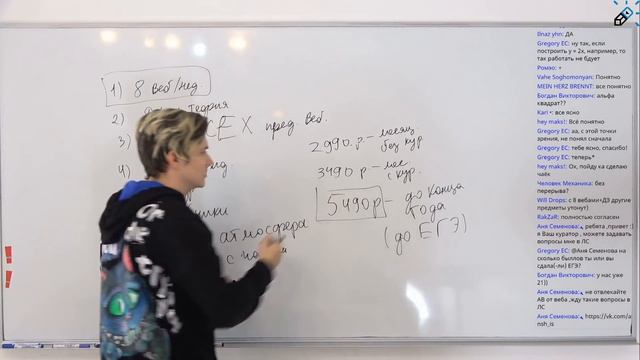 1) 8 веб/нед.
2) Теория
3) ЕХ пред веб.
4)
атмосфера
с
2990 р – месяц
без кур.
3490 р – мес
с кур.
5490р – до конца
года
(до ЕГЭ)
Ilnaz yhn: ДА
Gregory EC: ну так, если
построить y = 2x, например, то
так работать не бдует
Ромэо: +
Vahe Soghomonyan: Понятно
MEIN HERZ BRENNT: все понятно
Богдан Викторович: альфа
квадрат??
Kari •: все ясно
hey maks!: Всё понятно
Gregory EC: аа, с этой точки
зрения, не понял сначала
Gregory EC: тебе ясно, спасибо!
Gregory EC: теперь*
hey maks!: Ох, пойду ка сделаю
чаёк
Человек Механика: без
перерыва?
Will Drops: с 8 вебами+ДЗ другие
предметы утонут)
RakZaR: полностью согласен
Аня Семенова: ребята ,привет :)
я Ваш куратор , можете задавать
вопросы мне в ЛС
Gregory EC: @Аня Семенова на
сколько былло ты или вы
сдала(-ли) ЕГЭ?
Богдан Викторович: у нас уже
21))
Аня Семенова: не отвлекайте
АВ от веба ,жду такие вопросы в
ЛС
Аня Семенова: https://vk.com/a
nsh_is